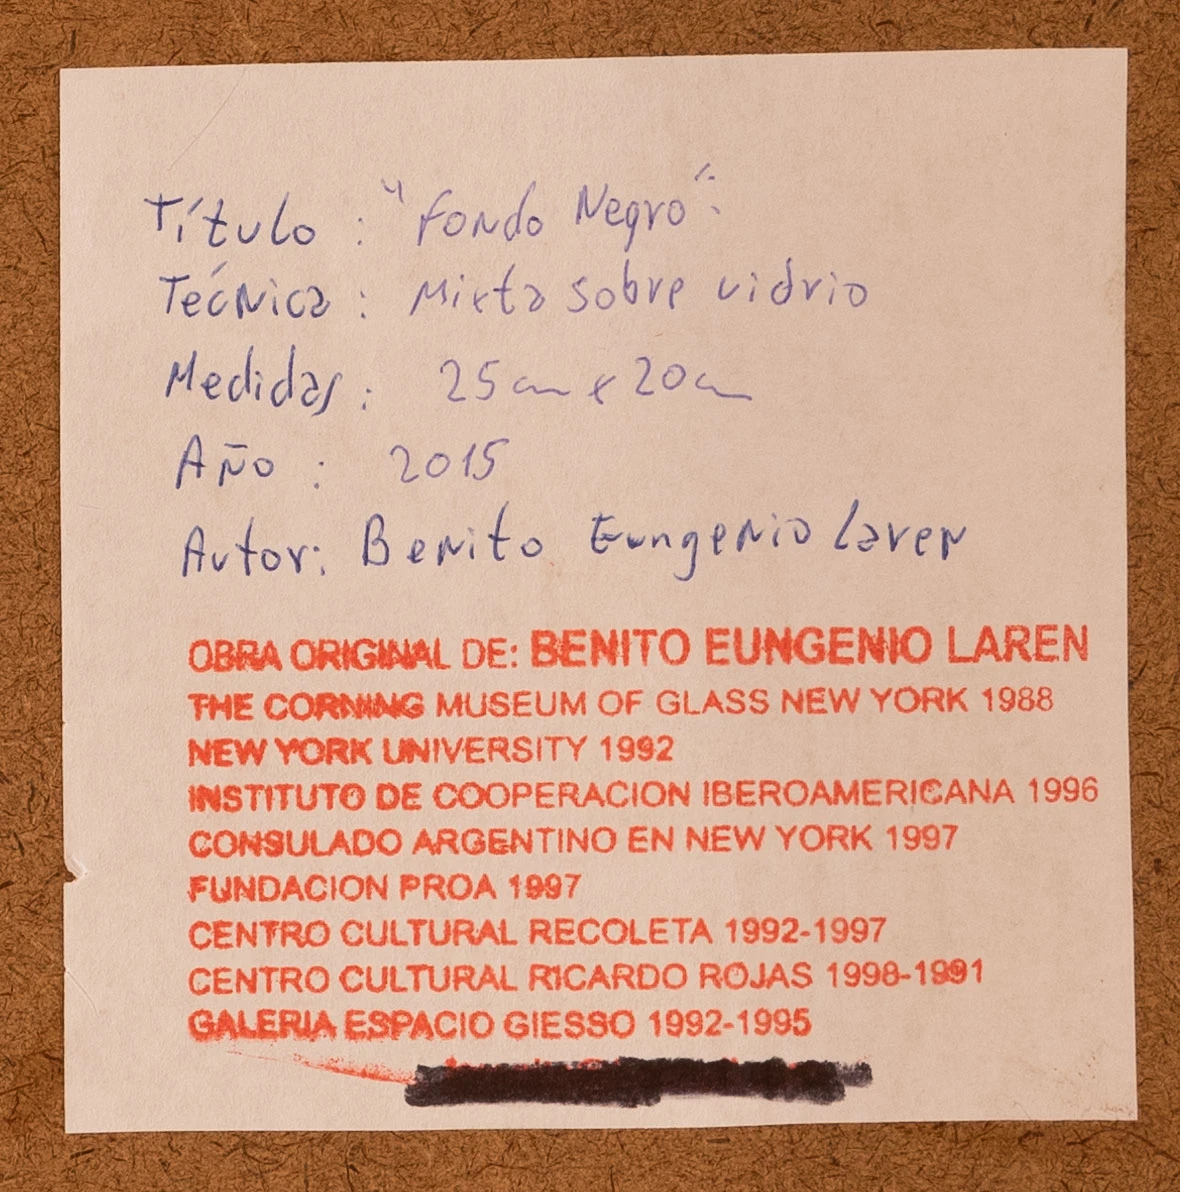 Título : "Fondo Negro".
Técnica : Mixta sobre vidrio
Medidas : 25cm x 20cm
Año : 2015
Autor: Benito Eungenio Laren
OBRA ORIGINAL DE: BENITO EUNGENIO LAREN
THE CORNING MUSEUM OF GLASS NEW YORK 1988
NEW YORK UNIVERSITY 1992
INSTITUTO DE COOPERACION IBEROAMERICANA 1996
CONSULADO ARGENTINO EN NEW YORK 1997
FUNDACION PROA 1997
CENTRO CULTURAL RECOLETA 1992-1997
CENTRO CULTURAL RICARDO ROJAS 1998-1991
GALERIA ESPACIO GIESSO 1992-1995